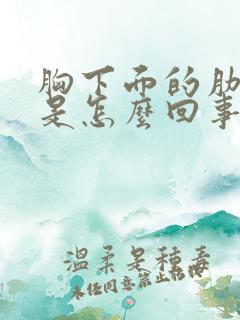 胸下面的肋
是怎麼回事
溫柔是種毒
未經同意禁止轉載